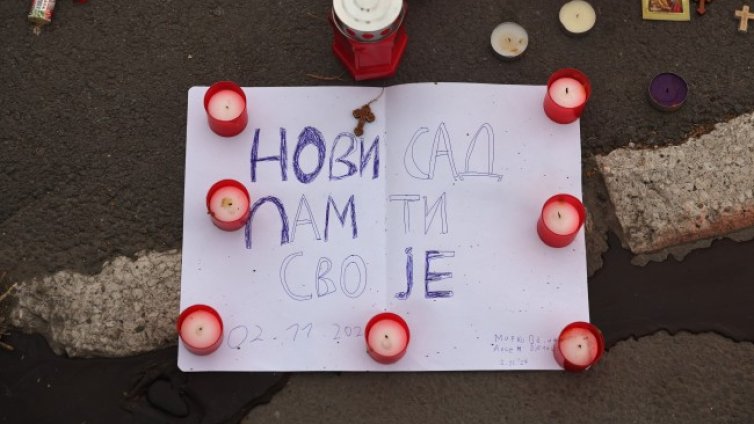 НОВИ САД
ПАМТИ
СВОЈЕ
02.11.202